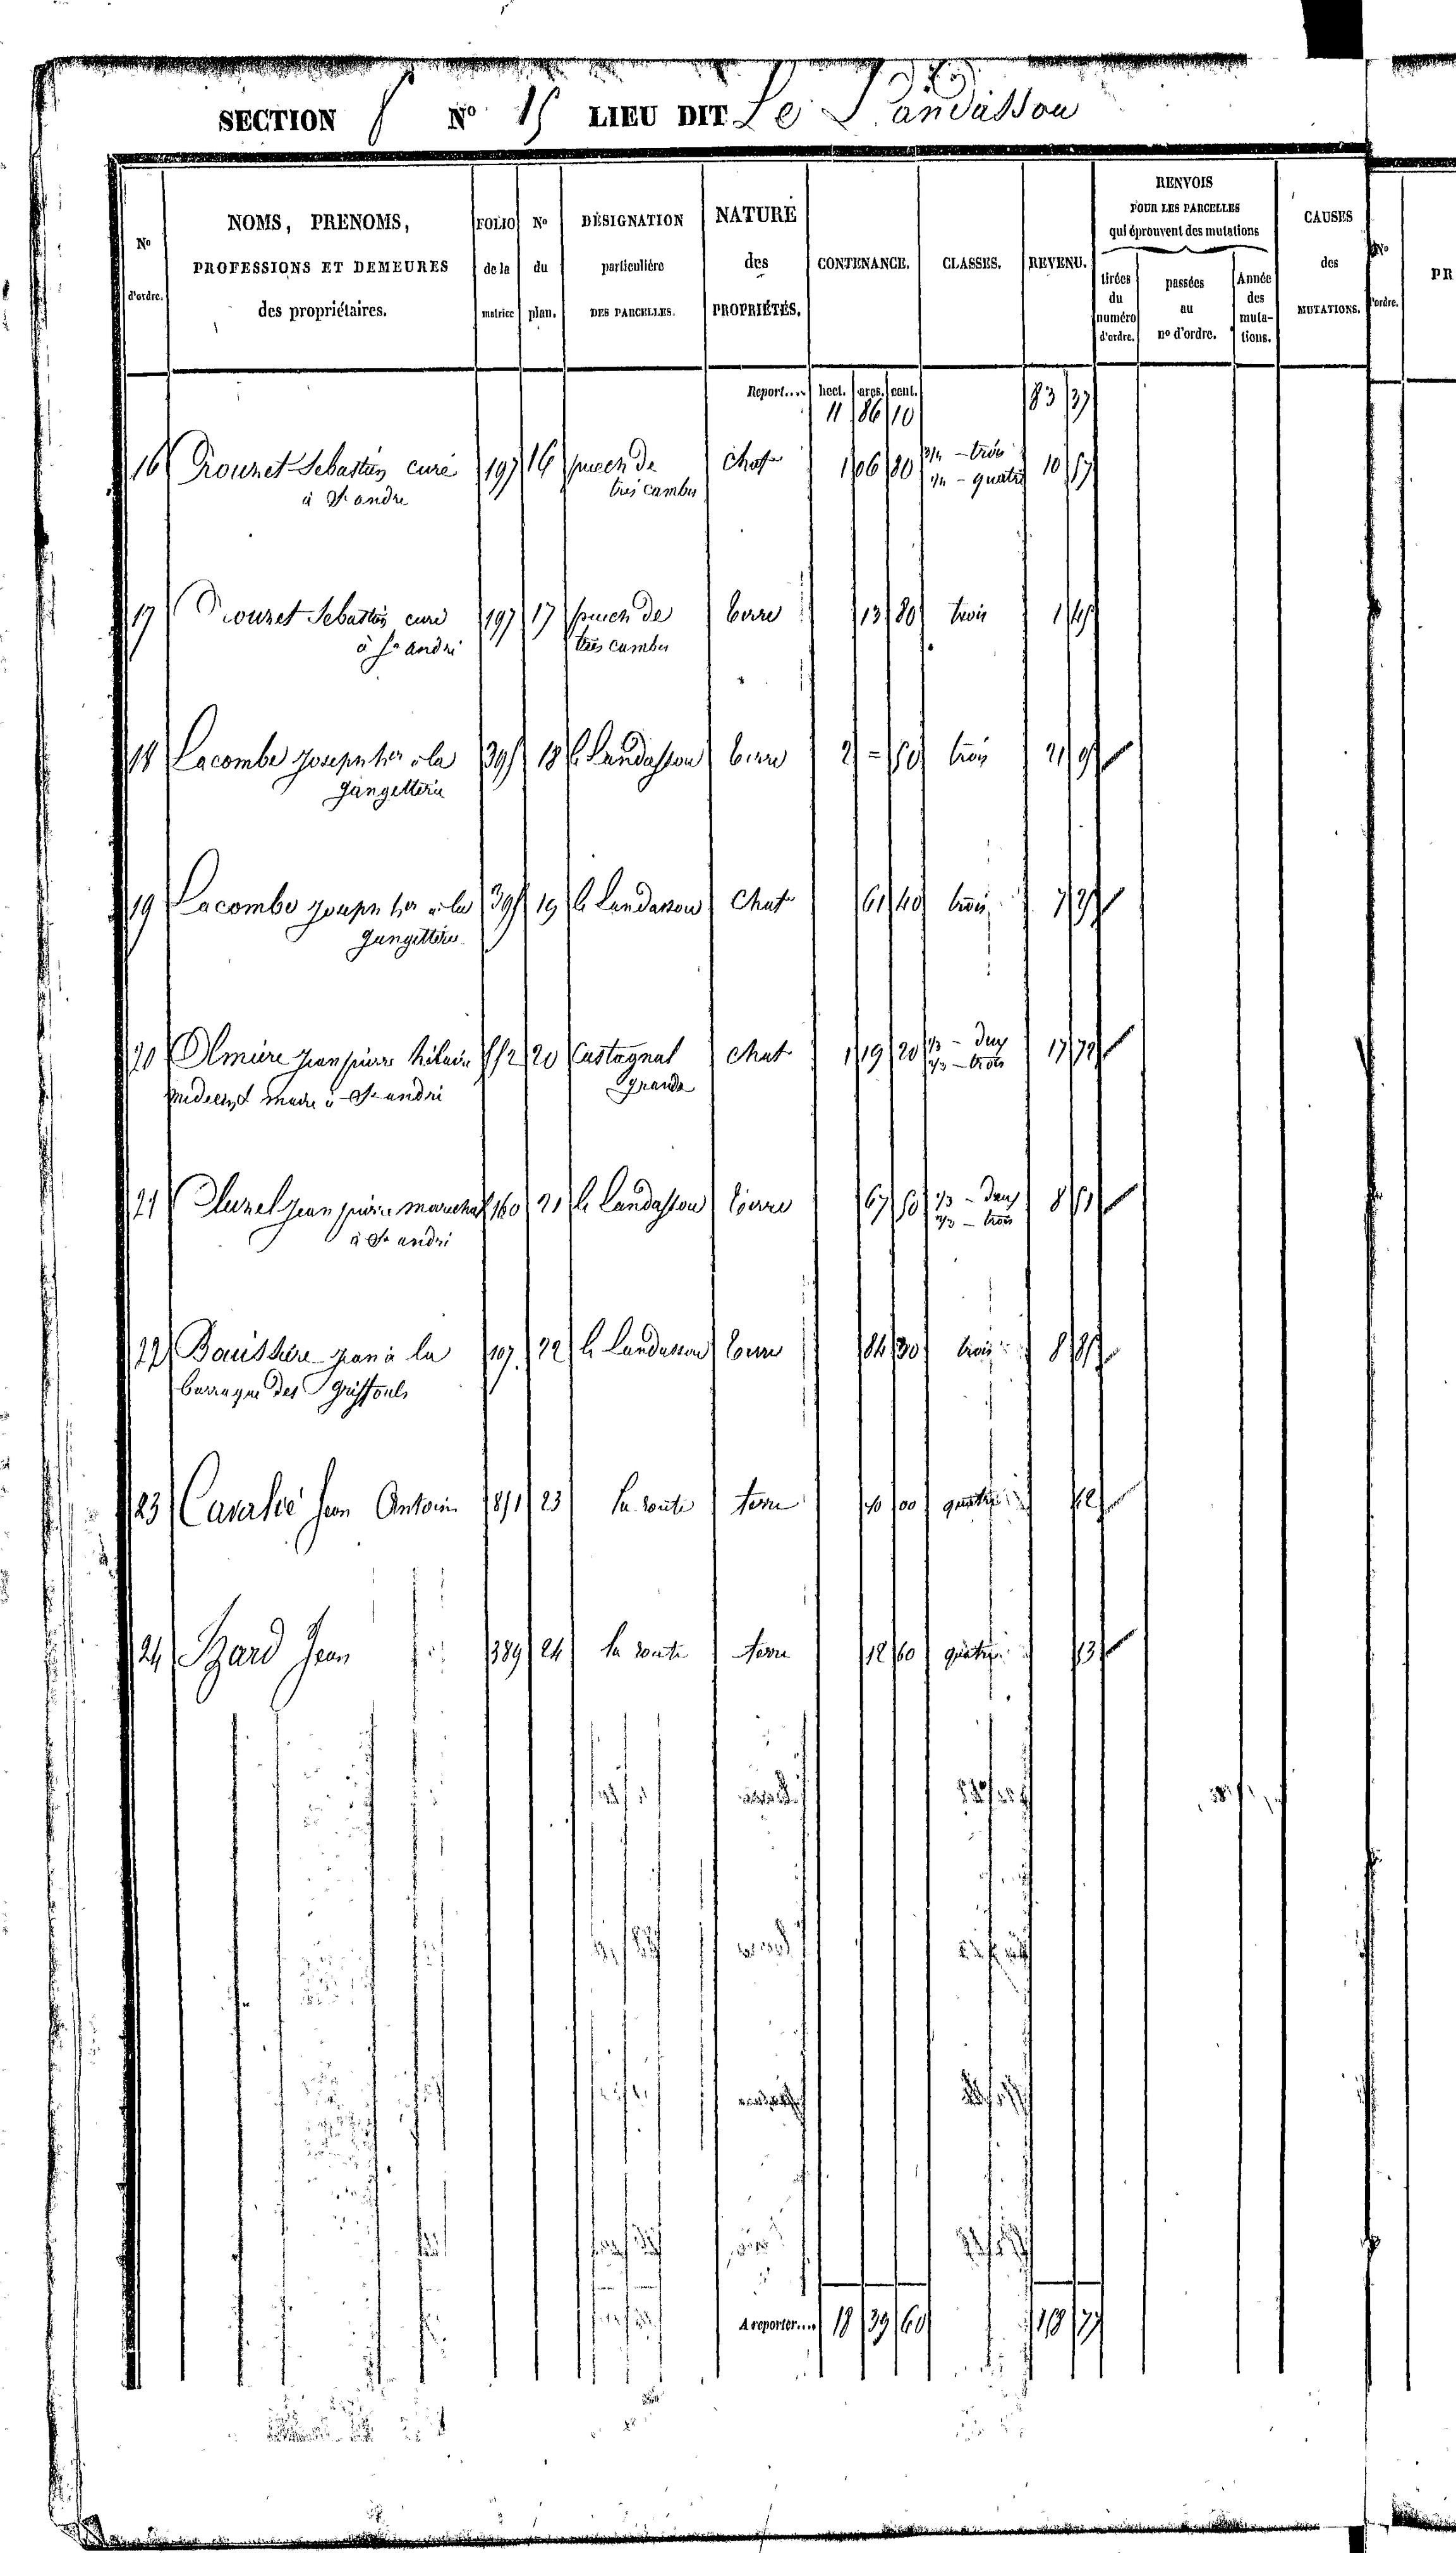 SECTION N° 15 LIEU DIT Le Landasson
N° d'ordre.
NOMS, PRENOMS,
PROFESSIONS ET DEMEURES
des propriétaires.
FOLIO de la matrice
N° du plan.
DÉSIGNATION
particulière
DES PARCELLES.
NATURE
des
PROPRIÉTÉS.
CONTENANCE.
CLASSES.
REVENU.
RENVOIS
POUR LES PARCELLES
qui éprouvent des mutations
tirées du numéro d'ordre.
passées au n° d'ordre.
Année des muta-tions.
CAUSES
des
MUTATIONS.
N° d'ordre.
PR
Report.... hect. ares. cent.
11 86 10 83 37
16 Rouzet Sebastien curé 197 16 puech de chat 1 06 80 3/4 - trois 10 57
à St andre tres cambes 1/4 - quatre
17 Rouzet Sebastien curé 197 17 puech de terre 13 80 trois 1 45
à St andré tres cambes
18 Lacombe Joseph her à la 395 18 le Landasson terre 2 = 50 trois 21
gangetterie
19 Lacombe Joseph her à la 395 19 le Landasson chat 61 40 trois 7
gangetterie
20 Olmière jean pierre hilaire 552 20 Castagnal chat 1 19 20 1/3 - deux 17
medecin et maire à St andré grande 2/3 - trois
21 jean pierre marechal 160 21 le Landasson terre 67 50 1/3 - deux 8 51
à St andré 2/3 - trois
22 Bouissière jean à la 107 22 le Landasson terre 84 30 trois 8 85
barraque des griffouls
23 Cavalié Jean Antoine 23 la route terre 10 00 quatre
24 Izard Jean 389 24 la route terre 12 60 quatre 53
A reporter.... 18 39 60